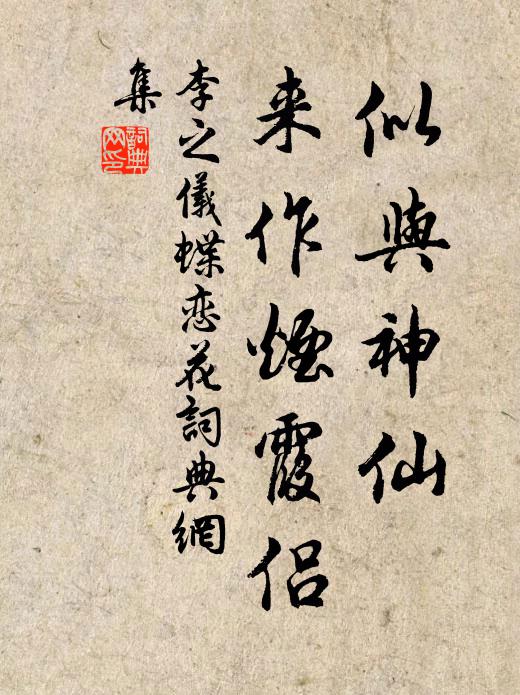 似與神仙
来作煙霞侣
李之儀蝶恋花詞典網
集
詞典
网印